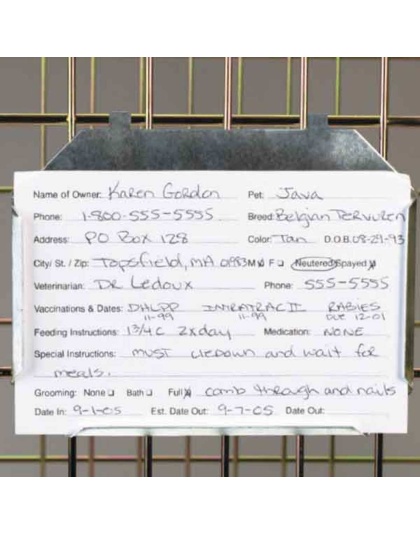 Name of Owner: Karen Gordon Pet: Java
Phone: 1-800-555-5555 Breed: Belgian Tervuren
Address: PO Box 128 Color: Tan D.O.B. 08-29-93
City/ St. / Zip: Topsfield, MA 01983 M F Neutered/Spayed
Veterinarian: DR Ledoux Phone: 555-5555
Vaccinations & Dates: DHLPP INTRATRAC II RABIES
11-99 11-99 Due 12-01
Feeding Instructions: 1 3/4 C 2x day Medication: NONE
Special Instructions: must lie down and wait for
meals.
Grooming: None Bath Full comb through and nails
Date In: 9-1-05 Est. Date Out: 9-7-05 Date Out: